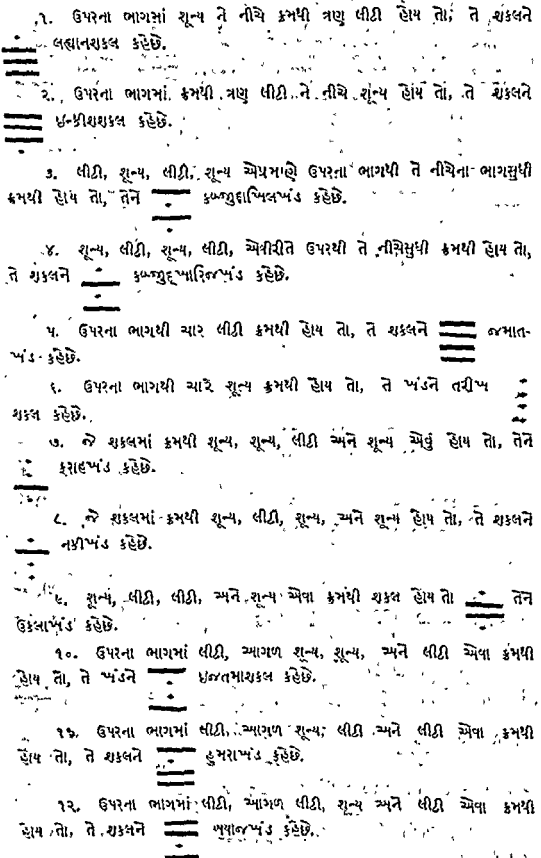 ૧. ઉપરના ભાગમાં શૂન્ય ને નીચે ક્રમથી ત્રણ લીટી હોય તો, તે શકલને
લહ્યાનશકલ કહેછે.
૨. ઉપરના ભાગમાં ક્રમથી ત્રણ લીટી ને નીચે શૂન્ય હોય તો, તે શકલને
ઇન્કીશશકલ કહેછે.
૩. લીટી, શૂન્ય, લીટી, શૂન્ય એપ્રમાણે ઉપરના ભાગથી તે નીચેના ભાગસુધી
ક્રમથી હોય તો, તેને કબ્જુદાખિલખંડ કહેછે.
૪. શૂન્ય, લીટી, શૂન્ય, લીટી, એવીરીતે ઉપરથી તે નીચેસુધી ક્રમથી હોય તો,
તે શકલને કબ્જુદ્ખારિજખંડ કહેછે.
૫. ઉપરના ભાગથી ચાર લીટી ક્રમથી હોય તો, તે શકલને જમાત-
ખંડ કહેછે.
૬. ઉપરના ભાગથી ચારે શૂન્ય ક્રમથી હોય તો, તે ખંડને તરીખ
શકલ કહેછે.
૭. જે શકલમાં ક્રમથી શૂન્ય, શૂન્ય, લીટી અને શૂન્ય એવું હોય તો, તેને
ફરાહખંડ કહેછે.
૮. જે શકલમાં ક્રમથી શૂન્ય, લીટી, શૂન્ય, અને શૂન્ય હોય તો, તે શકલને
નકીખંડ કહેછે.
૯. શૂન્ય, લીટી, લીટી, અને શૂન્ય એવા ક્રમથી શકલ હોય તો તેને
ઉકલાખંડ કહેછે.
૧૦. ઉપરના ભાગમાં લીટી, આગળ શૂન્ય, શૂન્ય, અને લીટી એવા ક્રમથી
હોય તો, તે ખંડને ઇજતમાશકલ કહેછે.
૧૧. ઉપરના ભાગમાં લીટી, આગળ શૂન્ય, લીટી અને લીટી એવા ક્રમથી
હોય તો, તે શકલને હુમરાખંડ કહેછે.
૧૨. ઉપરના ભાગમાં લીટી, આગળ લીટી, શૂન્ય અને લીટી એવા ક્રમથી
હોય તો, તે શકલને બયાજખંડ કહેછે.